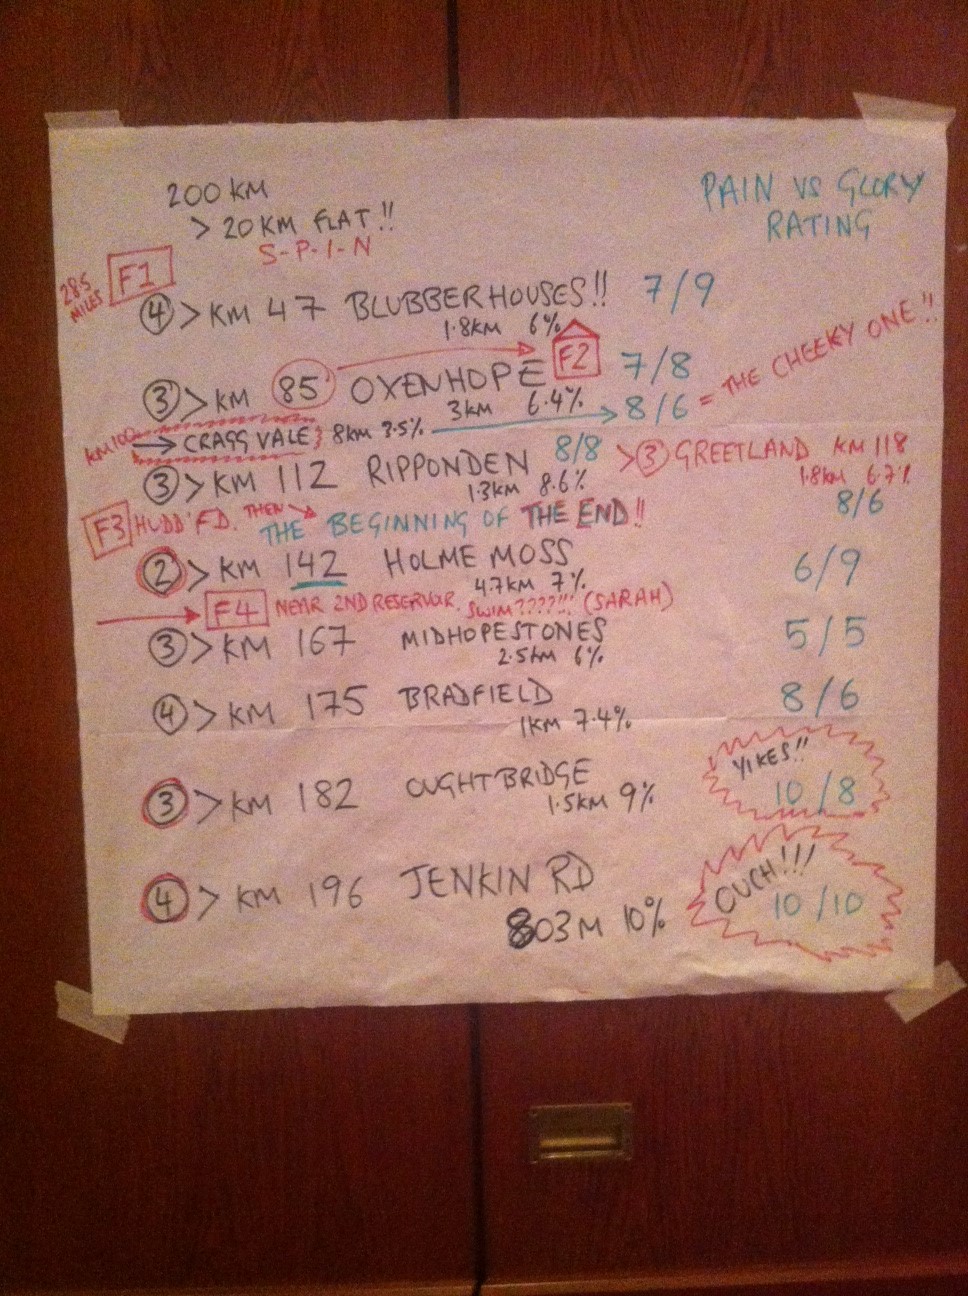 200 KM
PAIN VS GLORY
RATING
> 20 KM FLAT!!
S-P-I-N
28.5
MILES
F1
4 > KM 47 BLUBBERHOUSES!! 7/9
1.8KM 6%
F2
3 > KM 85 OXENHOPE 7/8
3KM 6.4%
KM100 → CRAGG VALE } 8KM 3.5% → 8/6 = THE CHEEKY ONE!!
3 > KM 112 RIPPONDEN 8/8 > 3 GREETLAND KM 118
1.3KM 8.6% 1.8KM 6.7%
8/6
F3 HUDD'FD. THEN → THE BEGINNING OF THE END!!
2 > KM 142 HOLME MOSS 6/9
4.7KM 7%
→ F4 NEAR 2ND RESERVOIR. SWIM????!!! (SARAH)
3 > KM 167 MIDHOPESTONES 5/5
2.5KM 6%
4 > KM 175 BRADFIELD 8/6
1KM 7.4%
YIKES!!
3 > KM 182 OUGHTBRIDGE 10/8
1.5KM 9%
OUCH!!!
4 > KM 196 JENKIN RD 10/10
803M 10%